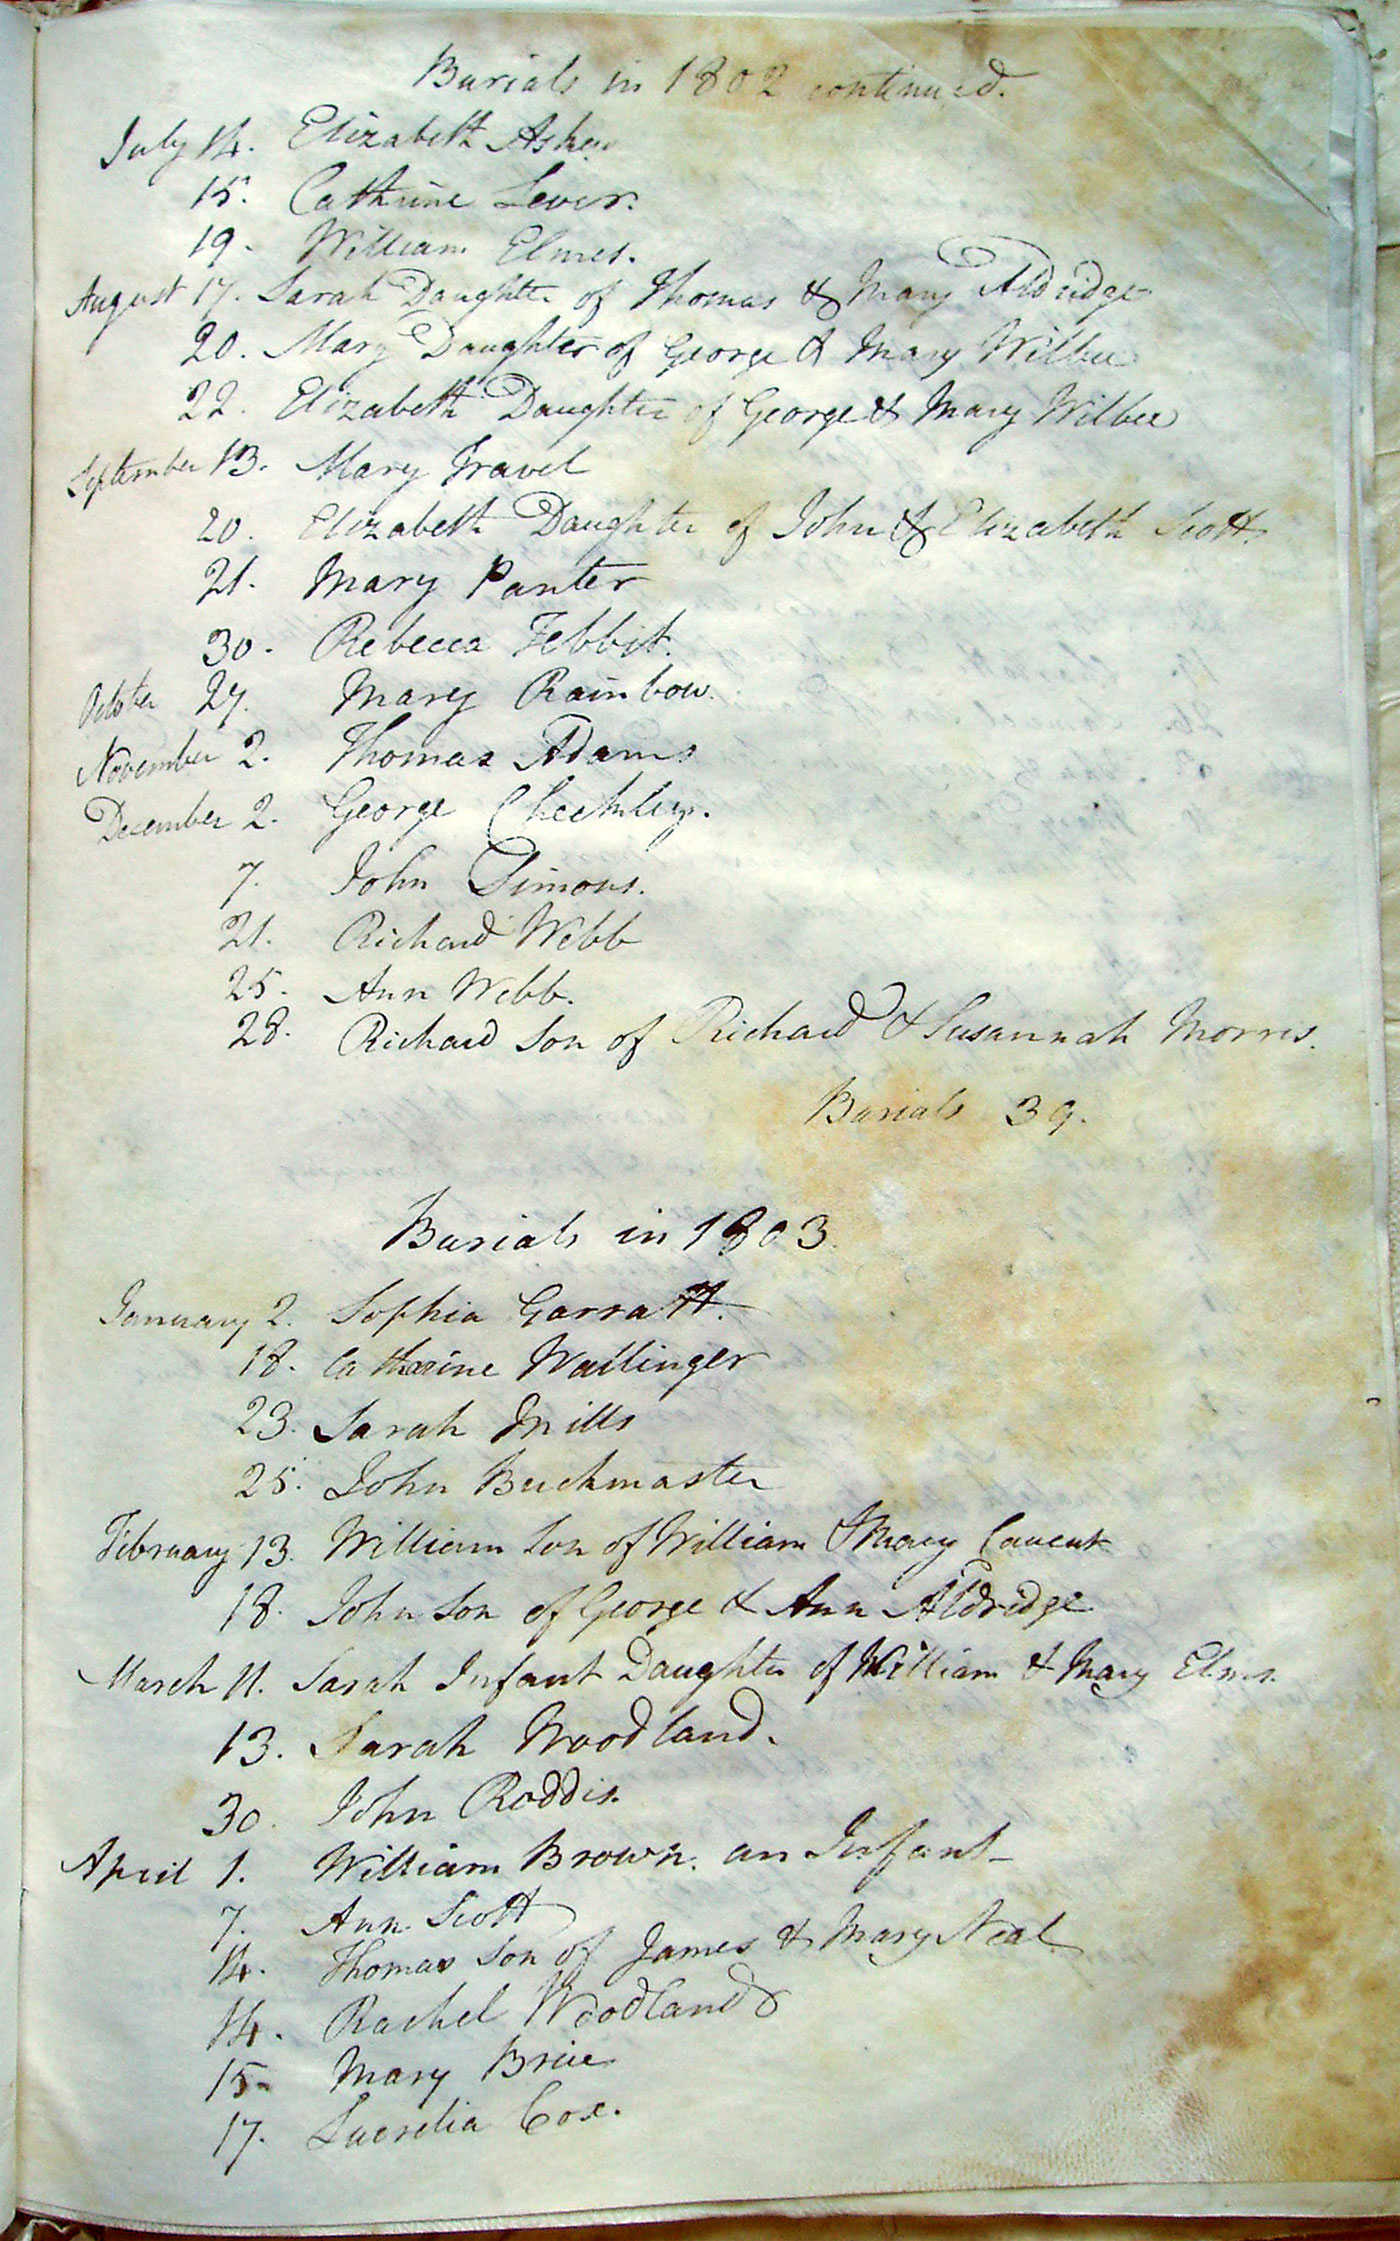 Burials in 1802 continued.
July 14. Elizabeth Askew
15. Cathrine Lever.
19. William Elmes.
August 17. Sarah Daughter of Thomas & Mary Aldridge
20. Mary Daughter of George & Mary Wilbee
22. Elizabeth Daughter of George & Mary Wilbee
September 13. Mary Travel
20. Elizabeth Daughter of John & Elizabeth Scott
21. Mary Panter
30. Rebecca Tebbit.
October 27. Mary Rainbow.
November 2. Thomas Adams
December 2. George Checkley.
7. John Simons.
21. Richard Webb
25. Ann Webb.
28. Richard Son of Richard & Susannah Morris.
Burials 39.
Burials in 1803
January 2. Sophia Garratt.
18. Catherine Wallinger
23. Sarah Mills
25. John Buckmaster
February 13. William Son of William & Mary
18. John Son of George & Ann Aldridge
March 11. Sarah Infant Daughter of William & Mary Elms.
13. Sarah Woodland.
30. John Roddis.
April 1. William Brown. an Infant
7. Ann Scott
14. Thomas Son of James & Mary Neal
14. Rachel Woodland
15 Mary Brice
17. Lucretia Cox.